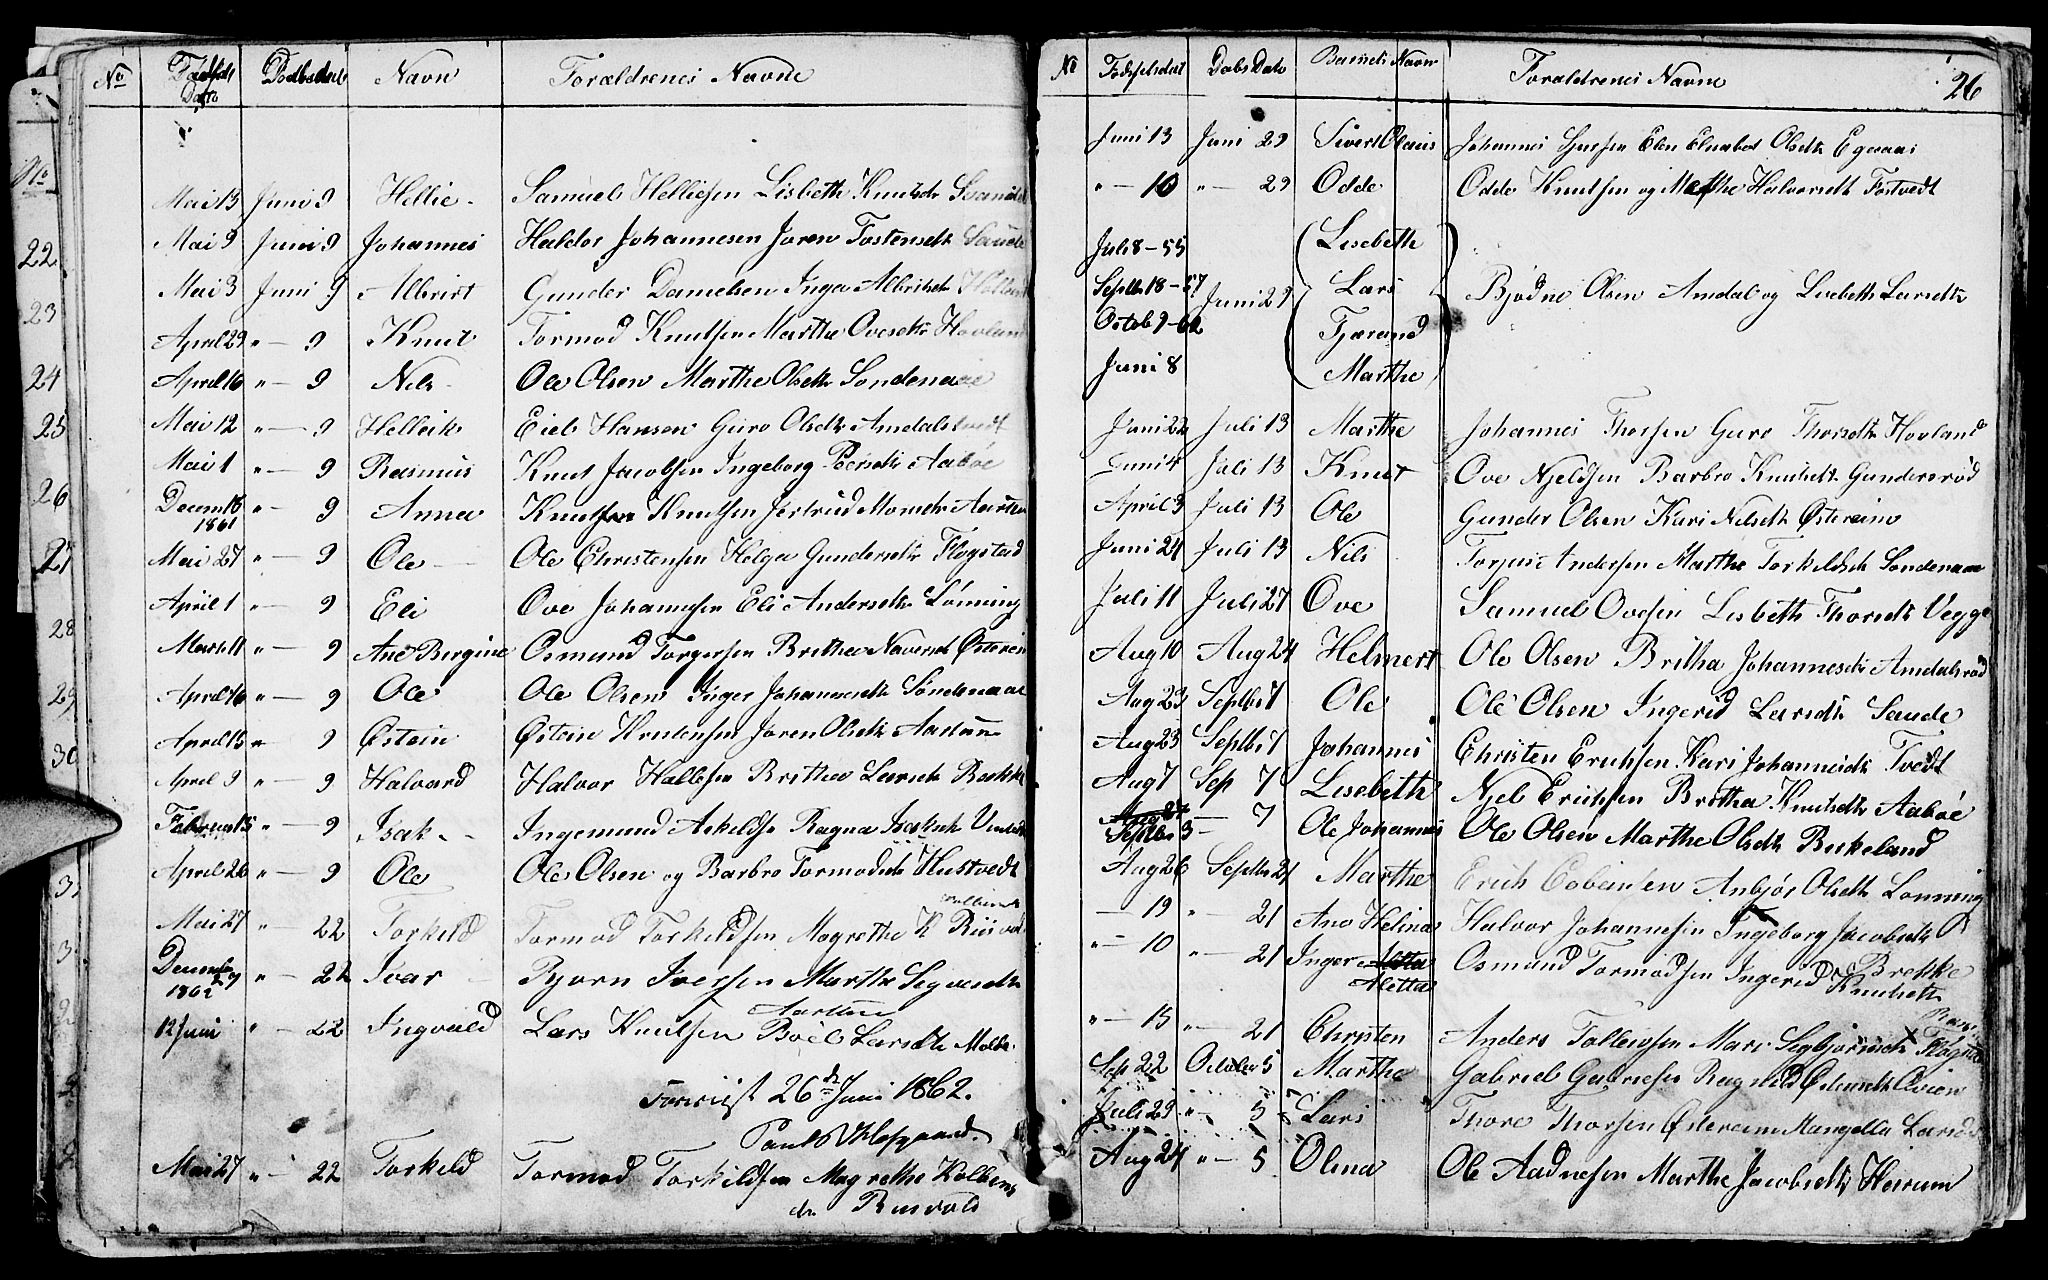 No Fødsels Dato Daabsdato Navn Forældrenes Navne
Mai 13 Juni 9 Hellie Samuel Helliesen Lisbeth Knutsdr
Mai 9 Juni 9 Johannes Haldor Johannesen Joren Tostensdt Saude
Mai 3 Juni 9 Albrict Gunder Danielsen Inga Albritsdr
April 29 " — 9 Knut Tormod Knutsen Marthe Ovesdtr Hovland
April 16 " — 9 Nils Ole Olsen Marthe Olsdtr Søndenaae
Mai 12 " — 9 Helleik Eiel Hansen Guro Olsdtr Amdals
Mai 1 " — 9 Rasmus Knut Jacobsen Ingeborg Peersdtr Aabøe
Decem 16 " — 9 Anna Knut Knutsen Jertrud
1861
Mai 27 " — 9 Ole Ole Christensen Helga Gundersdtr Flogstad
April 1 " — 9 Eli Ove Johannesen Eli Andersdtr Lønning
Marts 11 " — 9 Ane Bergine Osmund Torgersen Britha Østerein
April 16 " — 9 Ole Ole Olsen Inger Johannesdtr Søndenaae
April 15 " 9 Østein Østein Knutsen Joren Olsdtr Aartun
April 9 " — 9 Halvard Halvor Hallesen Britha Larsdtr Bakke
Februar 15 " — 9 Isak Ingemund Askelds Ragna Isaksdt
April 26 " — 9 Ole Ole Olsen og Barbro Tormodsdtr Hustvedt
Mai 27 " — 22 Torkild Tormod Torkildsen Magrethe K
Decemb 7 " — 22 Ivar Bjørn Iversen Marthe
1862
12 Juni " — 22 Ingvald Lars Knutsen Boel Larsdtr
Aartun
26 de Juni 1862.
Mai 27 " — 22 Torkeld Tormod Torkildsen Magrethe Kolbens
dr Riisvold
22
23
24
25
26
27
28
29
30
No Fødselsdat Dabs Dato Barnets Navn Forældrenes Navne 26
Juni 13 Juni 29 Sivert Olaus Johannes Elen Elisabet Olsdtr Egeraas
" — 10 " — 29 Odde Odde Knutsen og Methe Halvorsdt Tostvedt
Juli 8 - 55 Lisebeth
Septb 18 - 57 Juni 29 Lars Bjødne Olsen Amdal og Lisebeth Larsdtr
Octob 9 - 62 Tjærand
Juni 8 Marthe
Juni 22 Juli 13 Marthe Johannes Thorsen Guro Thorsdtr Hovland
Juni 4 Juli 13 Knut Ove Njeldsen Barbro Knutsdtr Gundersrød
April 3 Juli 13 Ole Gunder Olsen Kari Nilsdtr Østereim
Juni 24 Juli 13 Nils Torjus Andersen Marthe Torkildsdt Søndenaae
Juli 11 Juli 27 Ove Samuel Ovesen Lisbeth Thorsdtr Vegge
Aug 10 Aug 24 Helmert Ole Olsen Britha Johannesdtr Amdalsrød
Aug 23 Septbr 7 Ole Ole Olsen Ingerid Larsdtr Saude
Aug 23 Septbr 7 Johannes Christen Erichsen Kari Johannesdtr Tvedt
Aug 7 Sep 7 Lisebeth Njel Erichsen Britha Knutsdtr Aabøe
Septbr 3 — 7 Ole Johannes Ole Olsen Marthe Olsdtr Birkeland
Aug 26 Septbr 21 Marthe Erich Anbjør Olsdtr Lønning
— 19 " — 21 Ane Helina Halvor Johannesen Ingeborg Jacobsdtr
Brekke
" — 10 " — 21 Inger Aletta Osmund Tormodsen Ingerid Knutsdtr
" — 15 " — 21 Christen Anders Talleivsen Mari
Sep 22 October 5 Marthe Gabriel Gabrielsen Ragnild Østensdtr Qvien
Juli 29 " — 5 Lars Thore Thorsen Østereim Mangella Larsdtr
Aug 24 " — 5 Olena Ole Aadnesen Marthe Jacobsdtr Herrum